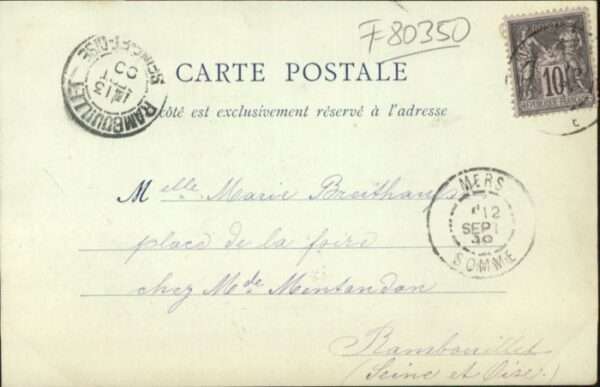 F80350
CARTE POSTALE
côté est exclusivement réservé à l'adresse
RAMBOUILLET
13
SEINE-ET-OISE
10
MERS
12
SEPT
SOMME
Melle Marie Breithaupt
place de la foire
chez Mde Montandon
Rambouillet
(Seine et Oise)